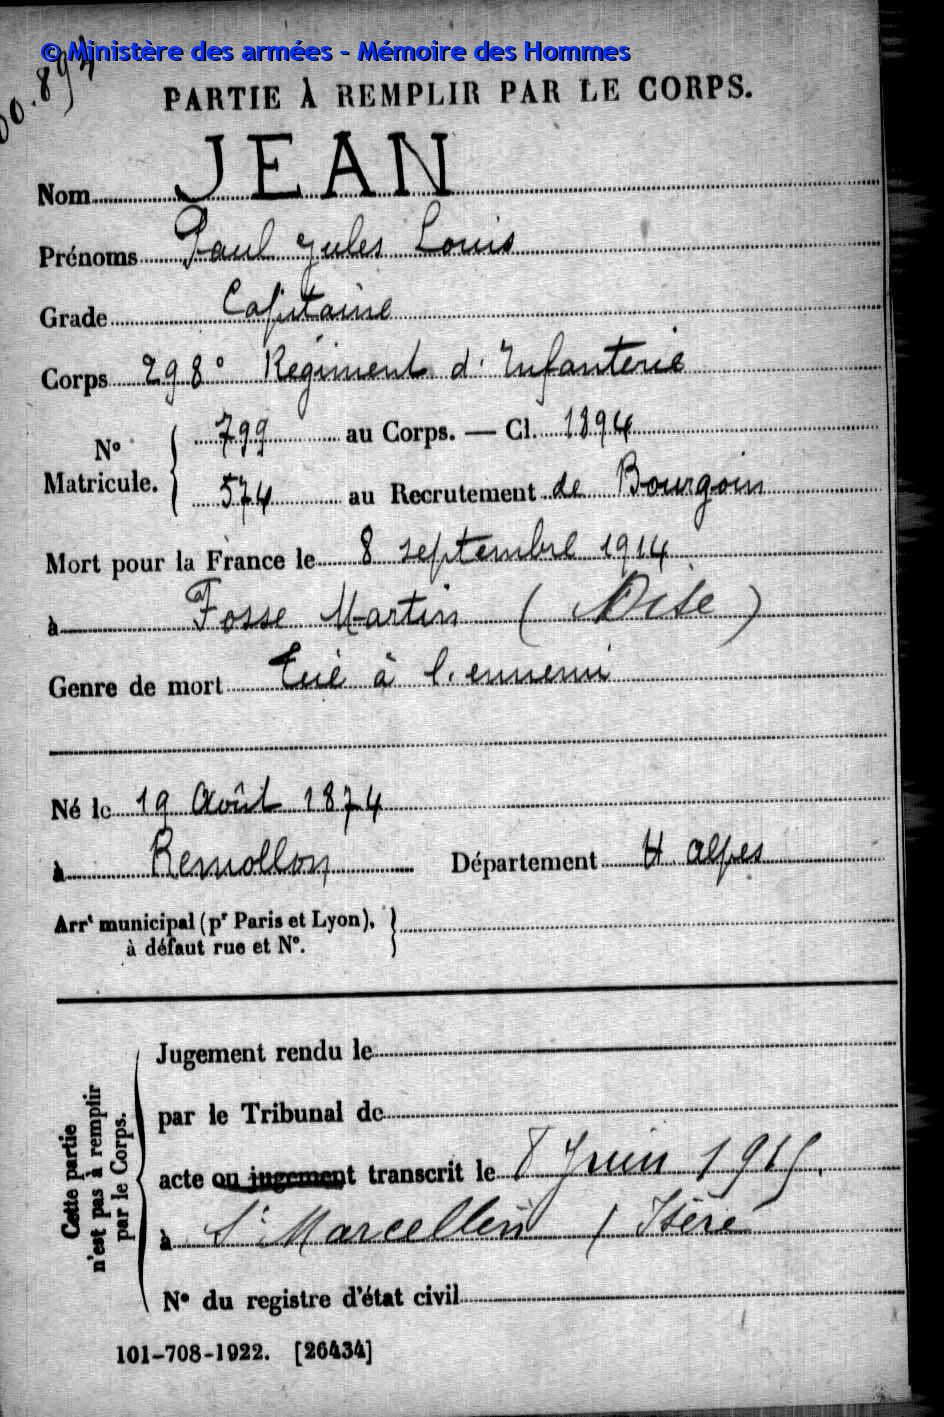 © Ministère des armées - Mémoire des Hommes
PARTIE À REMPLIR PAR LE CORPS.
Nom JEAN
Prénoms Paul Jules Louis
Grade Capitaine
Corps 298° Régiment d'Infanterie
N° Matricule. 799 au Corps. — Cl. 1894
574 au Recrutement de Bourgoin
Mort pour la France le 8 septembre 1914
à Fosse Martin (Oise)
Genre de mort Tué à l'ennemi
Né le 19 Août 1874
à Remollon Département H alpes
Arrt municipal (pr Paris et Lyon),
à défaut rue et N°.
Cette partie
n'est pas à remplir
par le Corps.
Jugement rendu le
par le Tribunal de
acte ou jugement transcrit le 8 Juin 1915.
à St Marcellin (Isère
N° du registre d'état civil
101-708-1922. [26434]